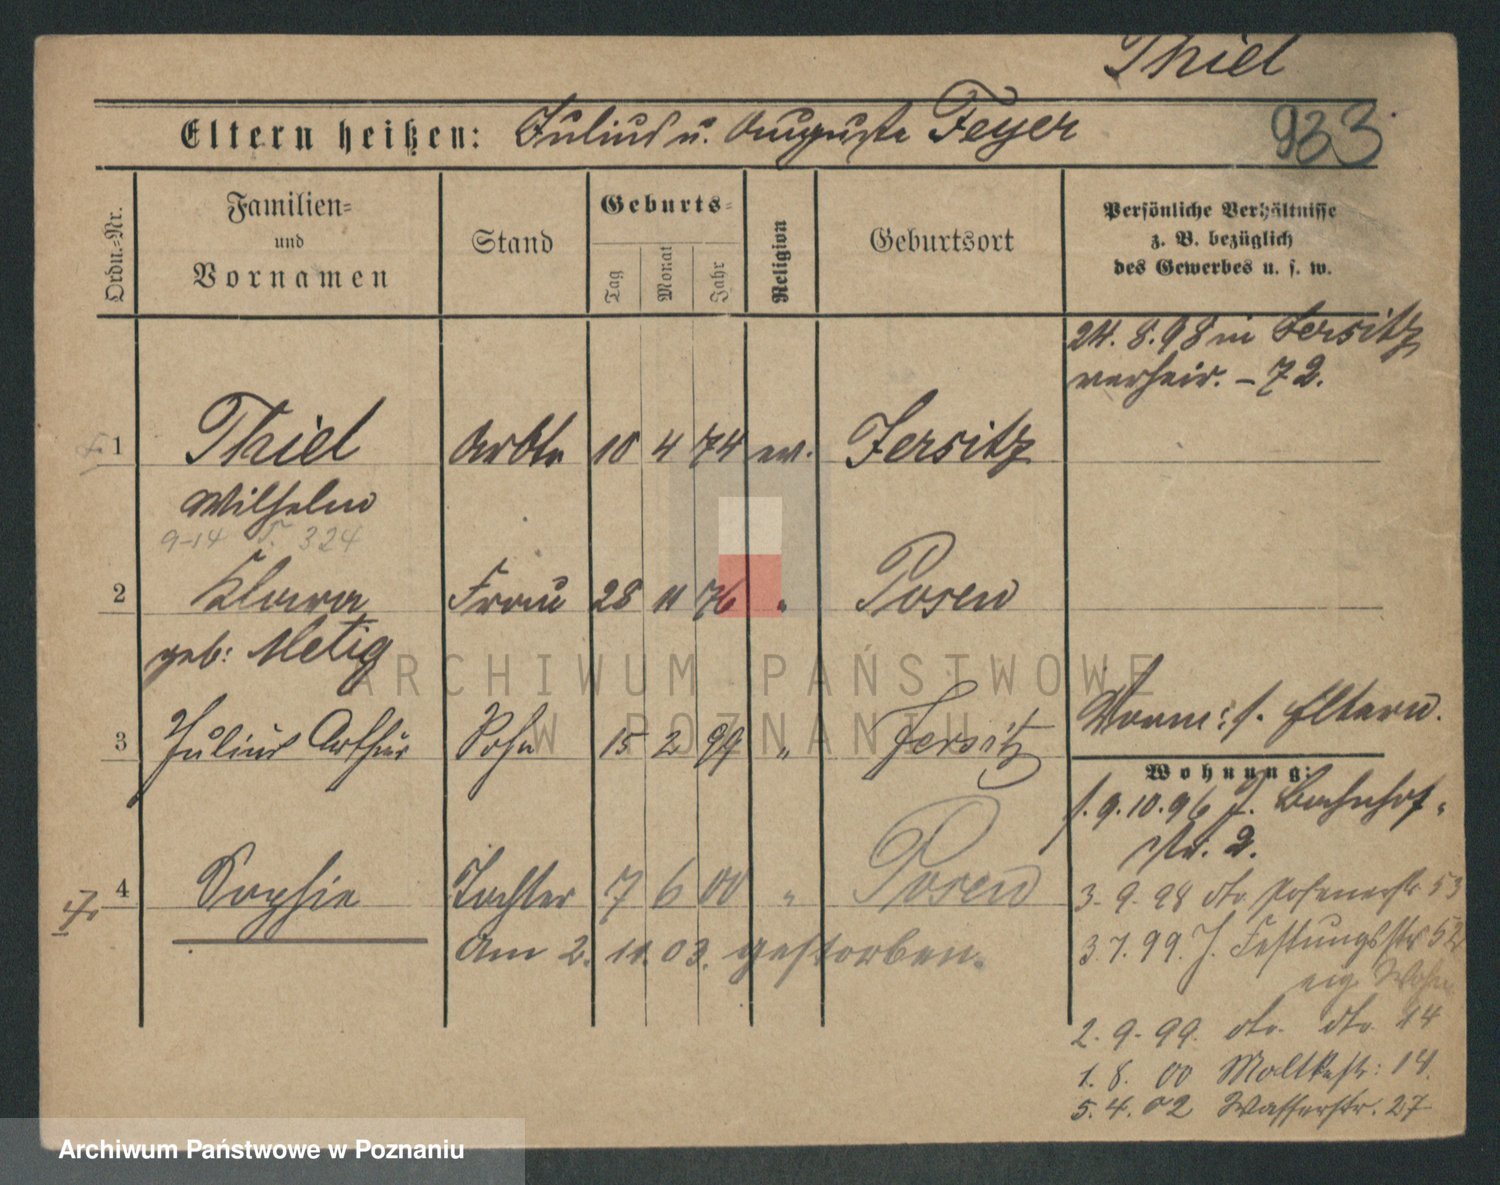 Thiel
933
Eltern heißen: Julius u. Auguste Feyer
Ordn.-Nr.
Familien-
und
Vornamen
Stand
Geburts-
Tag
Monat
Jahr
Religion
Geburtsort
Persönliche Verhältnisse
z. B. bezüglich
des Gewerbes u. s. w.
24. 8. 98 in Jersitz
verheir. - 72.
1 Thiel Arbtr 10 4 74 ev. Jersitz
Wilhelm
9-14 T. 324
2 Klara Frau 28 11 76 " Posen
geb: Metig
3 Julius Arthur Sohn 15 2 99 " Jersitz
Vorm: s. Eltern.
Wohnung:
s. 9. 10. 96 J. Bahnhof-
str. 2.
4 Sophie Tochter 7 6 00 " Posen
Am 2. 11. 03. gestorben.
3. 9. 98 dto Posenerstr 53
3. 7. 99. J. Festungsstr 52
eig. Wohn
2. 9. 99. dto. dto. 14
1. 8. 00 Moltkestr: 14.
5. 4. 02 Wasserstr. 27
ARCHIWUM PAŃSTWOWE
W POZNANIU
Archiwum Państwowe w Poznaniu